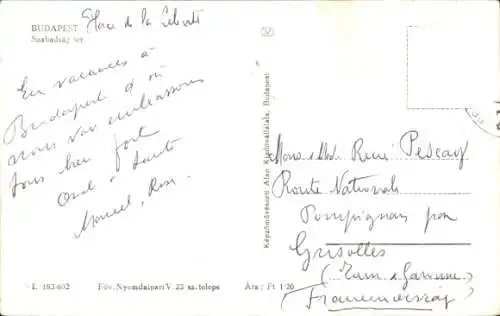 BUDAPEST Place de la Liberté
Szabadság tér
En vacances à
Budapest d'où
nous vous embrassons
tous bien fort
Marcel, Rose
L. 183/602
Főv. Nyomdaipari V. 23 sz. telepe
Ára: Ft 1'20
Képzőművészeti Alap Kiadóvállalata, Budapest
René
Route Nationale
Pompignan par
Grisolles
(Tarn & Garonne)
(Franciaország)